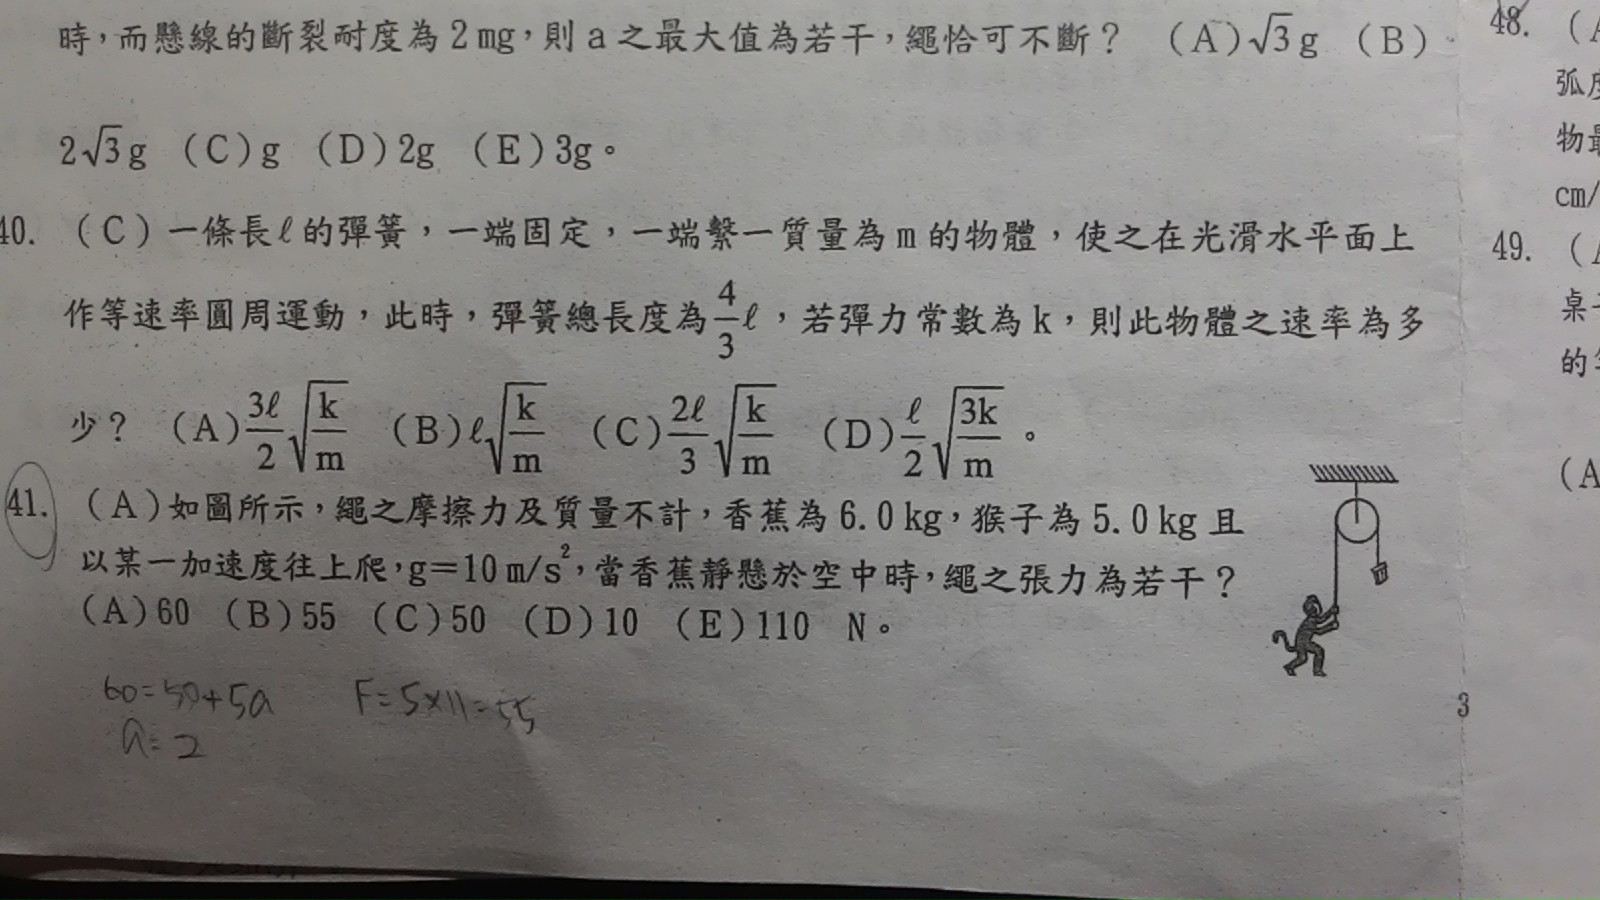 時，而懸線的斷裂耐度為2mg，則a之最大值為若干，繩恰可不斷？ (A)√3g (B)
2√3g (C)g (D)2g (E)3g。
40. (C)一條長ℓ的彈簧，一端固定，一端繫一質量為m的物體，使之在光滑水平面上
作等速率圓周運動，此時，彈簧總長度為4/3ℓ，若彈力常數為k，則此物體之速率為多
少？ (A)3ℓ/2√(k/m) (B)ℓ√(k/m) (C)2ℓ/3√(k/m) (D)ℓ/2√(3k/m)。
41. (A)如圖所示，繩之摩擦力及質量不計，香蕉為6.0kg，猴子為5.0kg且
以某一加速度往上爬，g＝10m/s²，當香蕉靜懸於空中時，繩之張力為若干？
(A)60 (B)55 (C)50 (D)10 (E)110 N。
60=50+5a F=5×11=55
a=2
3
48. (A
弧度
物最
cm/
49. (A
桌子
的等
(A